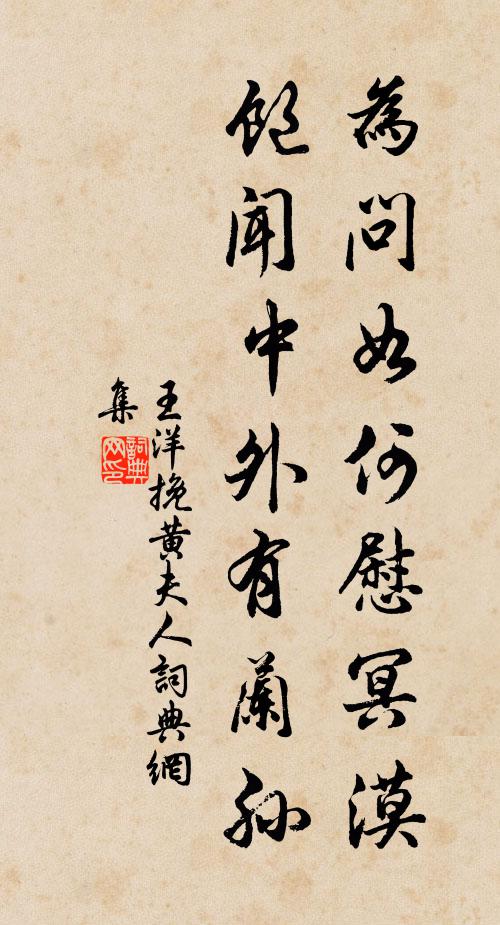 為問如何慰冥漠
飽聞中外有蘭孫
王洋挽黄夫人詞典網
集
詞典網印